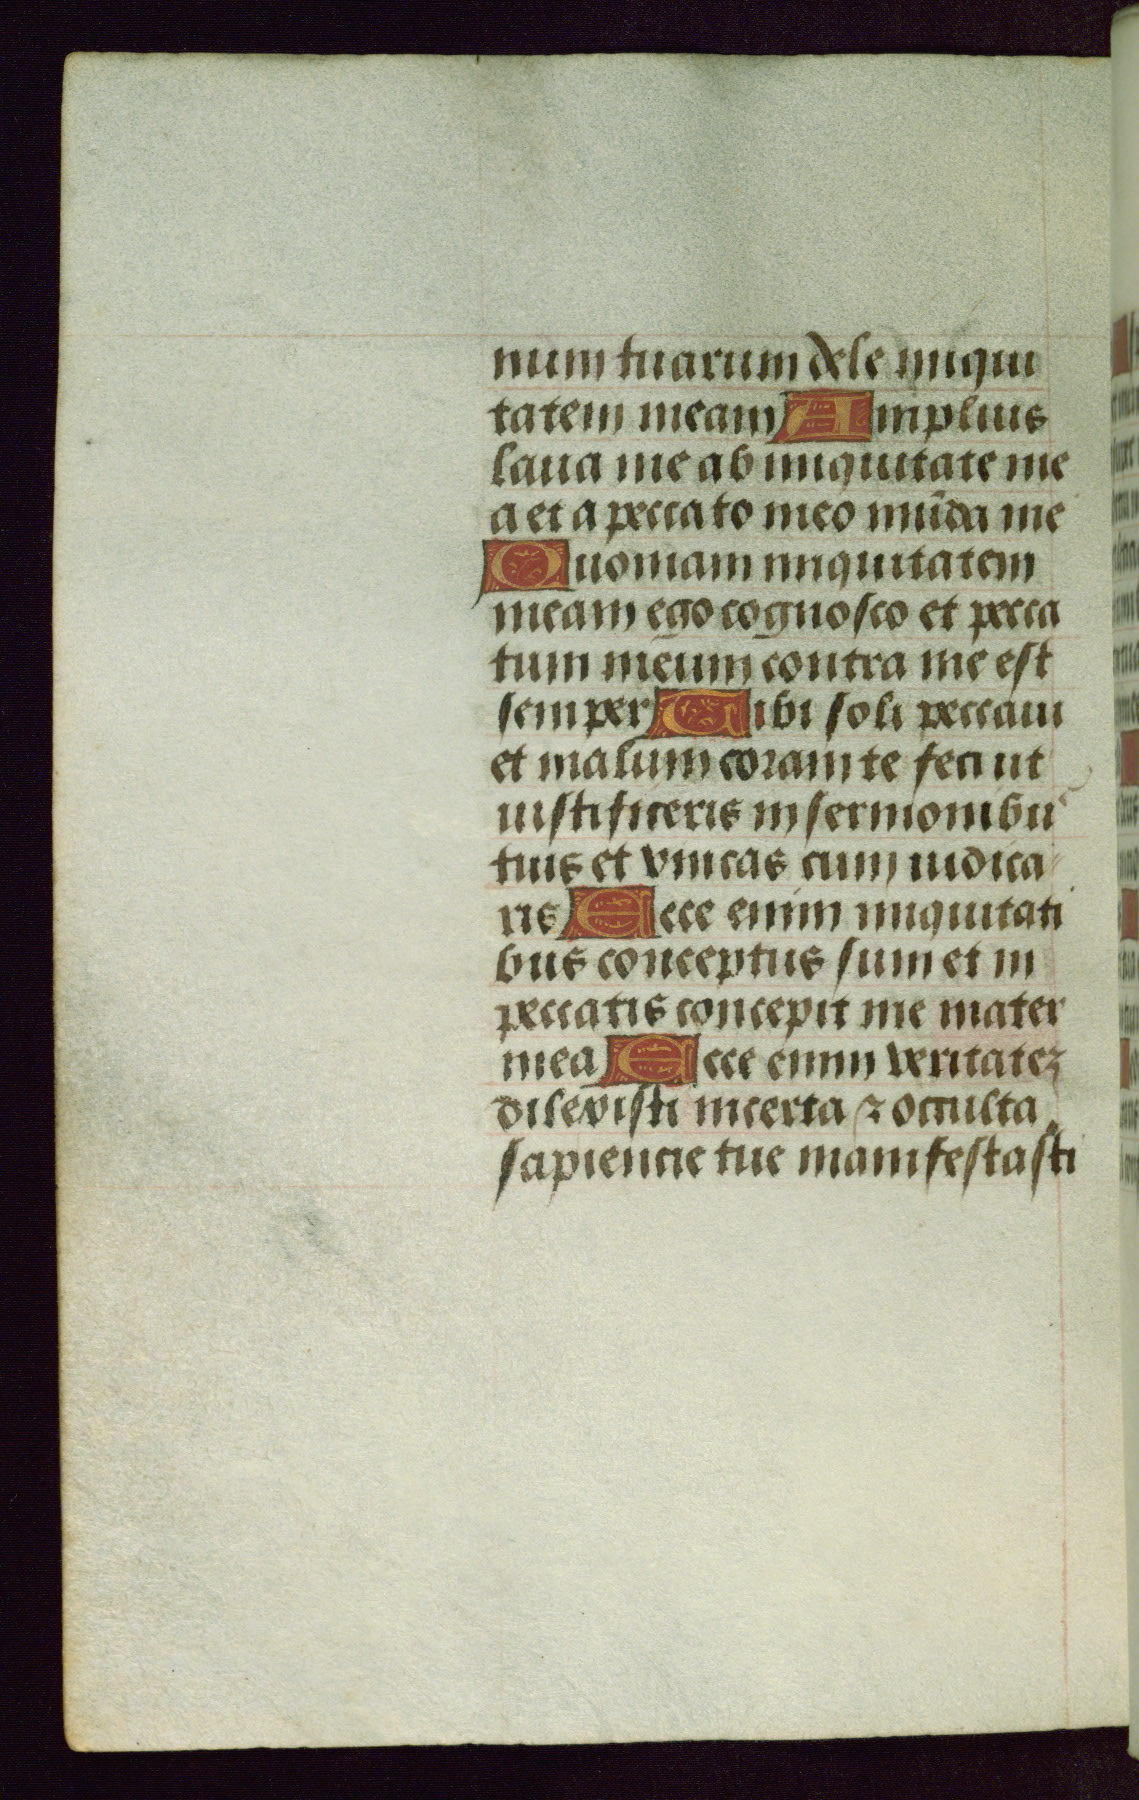 num tuarum dele iniqui
tatem meam Amplius
laua me ab iniquitate me
a et a peccato meo mūda me
Quoniam iniquitatem
meam ego cognosco et pecca
tum meum contra me est
semper Tibi soli peccaui
et malum coram te feci ut
iustificeris in sermonibus
tuis et vincas cum iudica
ris Ecce enim iniquitati
bus conceptus sum et in
peccatis concepit me mater
mea Ecce enim veritatez
dilexisti incerta ⁊ occulta
sapiencie tue manifestasti